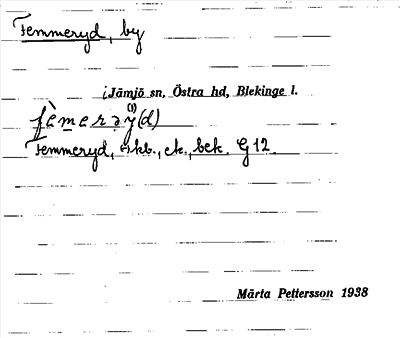 Femmeryd, by
i Jämjö sn, Östra hd, Blekinge l.
Femmeryd, ek., bek. G 12.
Märta Pettersson 1938